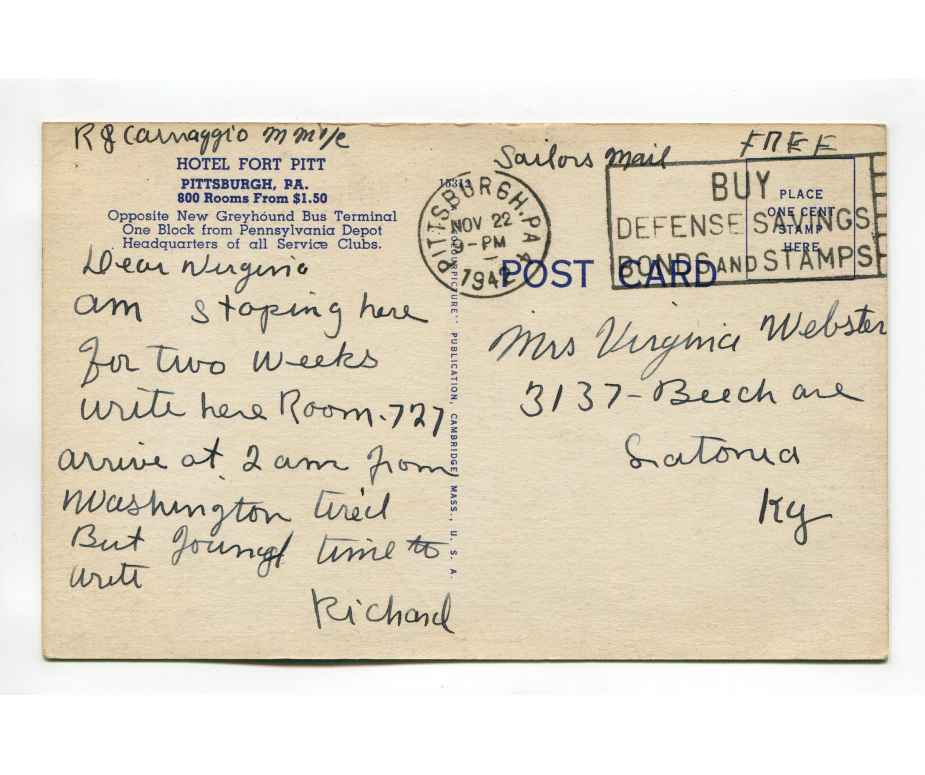 R J Carnaggio M M 1/c
HOTEL FORT PITT
PITTSBURGH, PA.
800 Rooms From $1.50
Opposite New Greyhound Bus Terminal
One Block from Pennsylvania Depot
Headquarters of all Service Clubs.
Dear Virginia
am stoping here
for two weeks
write here Room-727
arrive at 2 am from
Washington tired
But found time to
write
Richard
PUBLICATION, CAMBRIDGE, MASS., U. S. A.
PITTSBURGH, PA
NOV 22
PM
1942
Sailors Mail
FREE
BUY
DEFENSE SAVINGS
BONDS AND STAMPS
PLACE
ONE CENT
STAMP
HERE
POST CARD
Mrs Virginia Webster
3137-Beech ave
Latonia
Ky